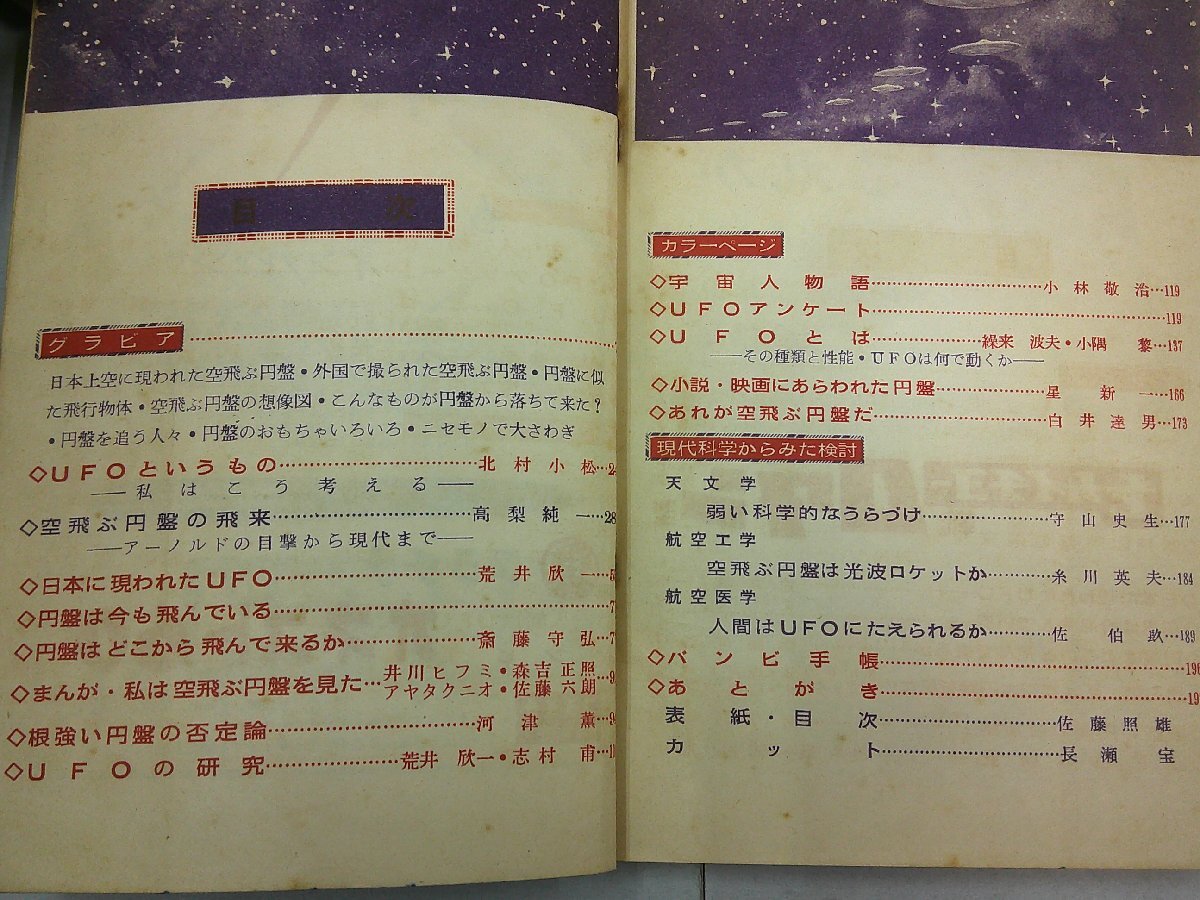 目次
グラビア
日本上空に現われた空飛ぶ円盤・外国で撮られた空飛ぶ円盤・円盤に似
た飛行物体・空飛ぶ円盤の想像図・こんなものが円盤から落ちて来た?
・円盤を追う人々・円盤のおもちゃいろいろ・ニセモノで大さわぎ
◇UFOというもの……北村小松…2
——私はこう考える——
◇空飛ぶ円盤の飛来……高梨純一…28
——アーノルドの目撃から現代まで——
◇日本に現われたUFO……荒井欣一…5
◇円盤は今も飛んでいる……7
◇円盤はどこから飛んで来るか……斎藤守弘…7
◇まんが・私は空飛ぶ円盤を見た…井川ヒフミ・森吉正照…9
アヤタクニオ・佐藤六朗
◇根強い円盤の否定論……河津薫…9
◇UFOの研究……荒井欣一・志村甫…1
カラーページ
◇宇宙人物語……小林敬治…119
◇UFOアンケート……119
◇UFOとは……繰来波夫・小隅黎…137
——その種類と性能・UFOは何で動くか——
◇小説・映画にあらわれた円盤……星新一…166
◇あれが空飛ぶ円盤だ……白井達男…173
現代科学からみた検討
天文学
弱い科学的なうらづけ……守山史生…177
航空工学
空飛ぶ円盤は光波ロケットか……糸川英夫…184
航空医学
人間はUFOにたえられるか……佐伯…189
◇バンビ手帳……196
◇あとがき……19
表紙・目次……佐藤照雄
カット……長瀬宝